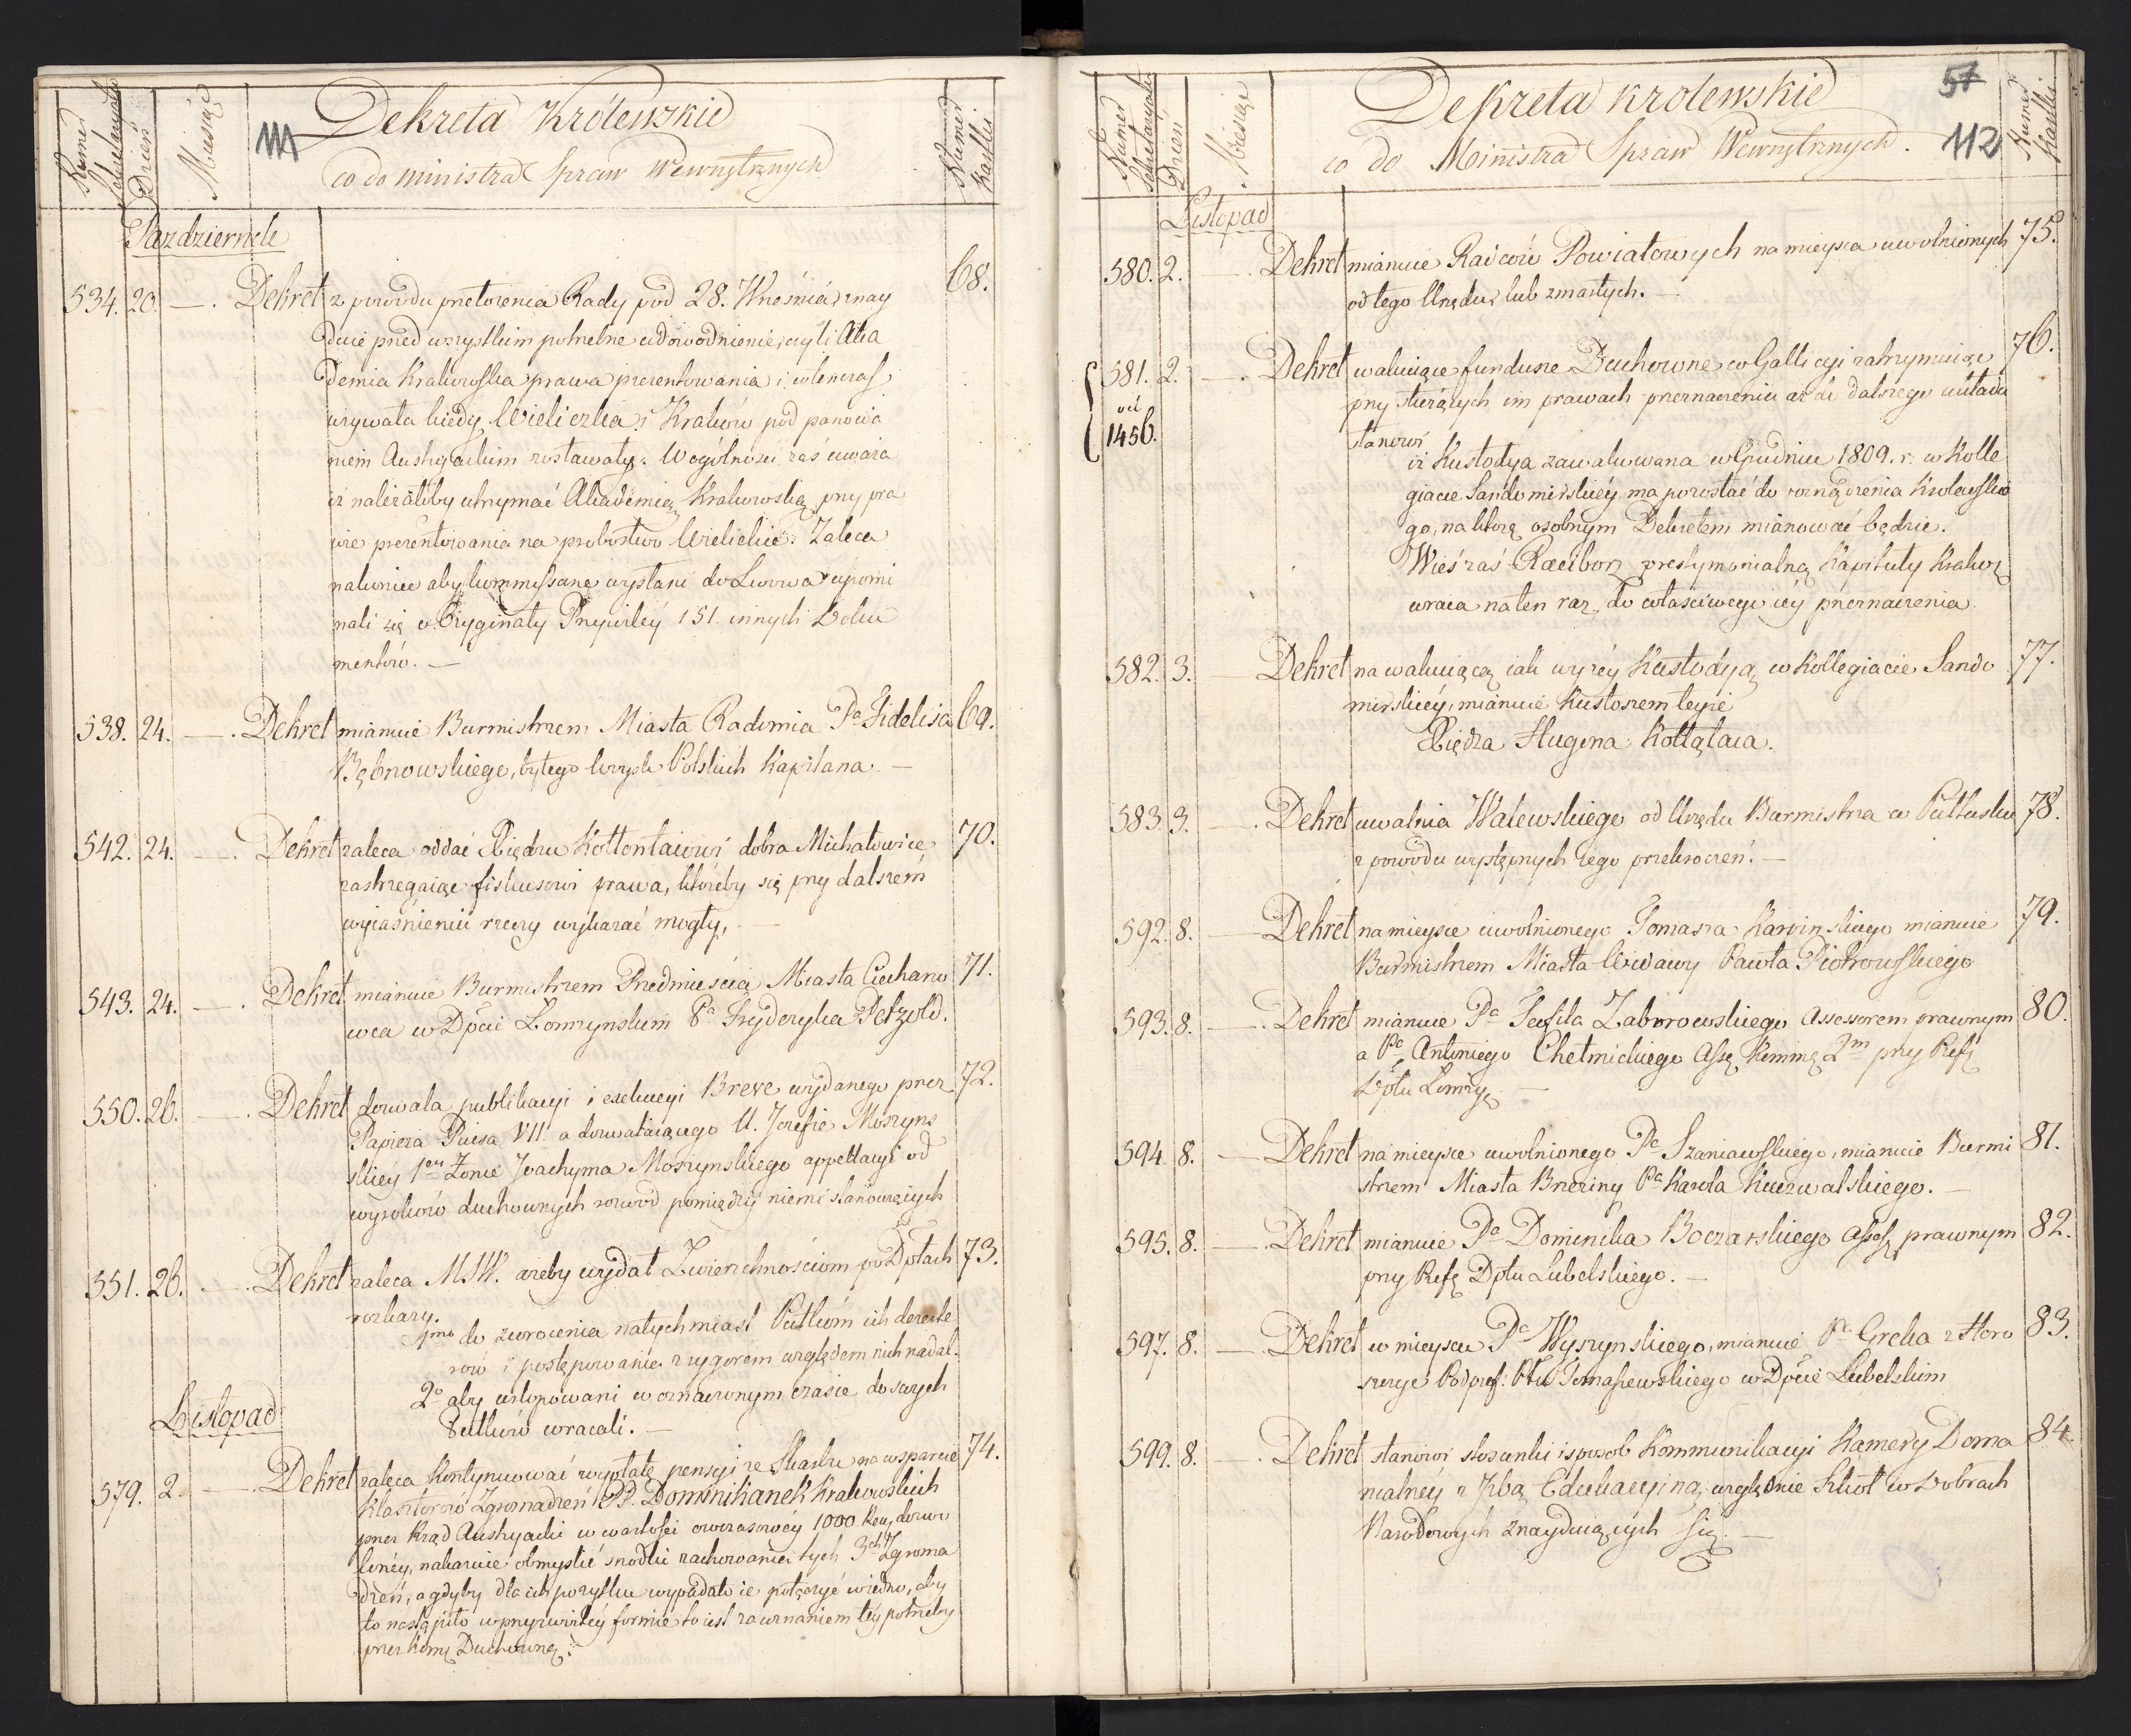 Numer Sekretaryatu
Dzień
Miesiąc
111
Dekreta Królewskie
co do ministra Spraw Wewnętrznych
Numer Kartki
Pazdziernik
534. 20. — . Dekret z powodu przełożenia Rady pod 28. Września znay 68.
duie przed wszystkim potrzebne udowodnienie, czyli Aka
demia Krakowska prawa prezentowania i wtenczas
używała kiedy Wieliczka i Kraków pod panowa
niem Austryackim zostawały. W ogólności zaś uważa
iż należałoby utrzymać Akademią Krakowską przy pra
wie prezentowania na probostwo Wielickie. Zaleca
nakoniec aby kommissarze wysłani do Lwowa upomi
nali się o Oryginały Przywiley 151 innych Doku
mentów. —
538. 24. — . Dekret mianuie Burmistrzem Miasta Radomia Pa Fidelisa 69.
Bębnowskiego, byłego Woysk Polskich Kapitana. —
542. 24. — . Dekret zaleca oddać Xiędzu Kołłontaiowi dobra Michałowice 70.
zastrzegaiąc fiskusowi prawa, któreby się przy dalszém
wyiaśnieniu rzeczy wykazać mogły, —
543. 24. — . Dekret mianuie Burmistrzem Przedmieścia Miasta Ciechano 71.
wca w Dpcie Łomżynskim Pa Fryderyka Petzold.
550. 26. — . Dekret dozwala publikacyi i exekucyi Breve wydanego przez 72.
Papieża Piusa VII. a dozwalaiącego U. Jozefie Moszyns
kiey 1en Zonie Joachyma Moszynskiego appellacyi od
wyroków duchownych rozwód pomiędzy niemi stanowiących
551. 26. — . Dekret zaleca M.S.W. ażeby wydał Zwierzchnościom po Dptach 73.
rozkazy.
1mo do zwrócenia natychmiast Pułkóm ich dezerte
rów i postępowania z rygorem względem nich nadal.
2o aby urlopowani w oznaczonym czasie do swych
Pułków wracali. —
Listopad
579. 2. — . Dekret zaleca kontynuować wypłatę pensyi ze Skarbu na wsparcie 74.
Klasztorów Zgromadzeń PP. Dominikanek Krakowskich
przez Rząd Austryacki w wartości owczasowéy 1000 Ren, dozwo
lonéy, nakazuie obmyslić srodki zachowania tych 3ch Zgroma
dzeń, a gdyby dla ich pożytku wypadało ie połączyć wiedno, aby
to nastąpiło w przyzwoitéy formie to iest za uznaniem téy potrzeby
przez Komę Duchowną.
Numer Sekretaryatu
Dzień
Miesiąc
Dekreta krolewskie
co do Ministra Spraw Wewnętrznych.
57
112
Numer Kartki
Listopad
580. 2. — . Dekret mianuie Raiców Powiatowych na mieysca uwolnionych 75.
od tego Urzędu, lub zmarłych. —
581. 2. — . Dekret wakuiące fundusze Duchowne w Gallicyi zatrzymuiąc 76.
vel
1456.
przy służących im prawach przeznaczeniu aż do dalszego układu
stanowi
iż Kustodya zawakowana w Grudniu 1809. r. w Kolle
giacie Sandomirskiéy ma pozostać do rozrządzenia Krolewskie
go, na którą osobnym Dekretem mianować będzie.
Wieś zaś Racibory prestymonialną Kapituły Krakow
wraca na ten raz, do właściwego iéy przeznaczenia.
582. 3. — Dekret na wakuiącą iak wyżéy Kustodyą w Kollegiacie Sando 77.
mirskiéy, mianuie Kustoszem teyże
Xiędza Hugona Kołłątaia.
583. 3. — . Dekret uwalnia Walewskiego od Urzędu Burmistrza w Pułtusku 78.
z powodu występnych iego przekroczeń. —
592. 8. — Dekret na mieysce uwolnionego Tomasza Karwinskiego mianuie 79.
Burmistrzem Miasta Wiskitwy Pawła Piotrowskiego
593. 8. — . Dekret mianuie Pa Teofila Zaborowskiego Assessorem prawnym 80.
a Pa Antoniego Chełmickiego Assę Kommę 2m przy Refę
Dptu Łomżyę —
594. 8. — Dekret na mieysce uwolnionego Pa Szaniawskiego, mianuie Burmi 81.
strzem Miasta Brzeziny Pa Karola Kuczwalskiego. —
595. 8. — . Dekret mianuie Pa Dominika Boczarskiego Assesę prawnym 82.
przy Refę Dptu Lubelskiego. —
597. 8. — . Dekret w mieyscu Pa Wyszynskiego, mianuie Pa Greka z Horo 83.
szczyc Podpref: Pttu Tomaszewskiego w Dpcie Lubelskim
599. 8. — . Dekret stanowi stosunki i sposob Kommunikacyi Kamery Doma 84.
nialnéy z Jzbą Edukacyiną względnie Szkół w Dobrach
Narodowych znayduiących się. —